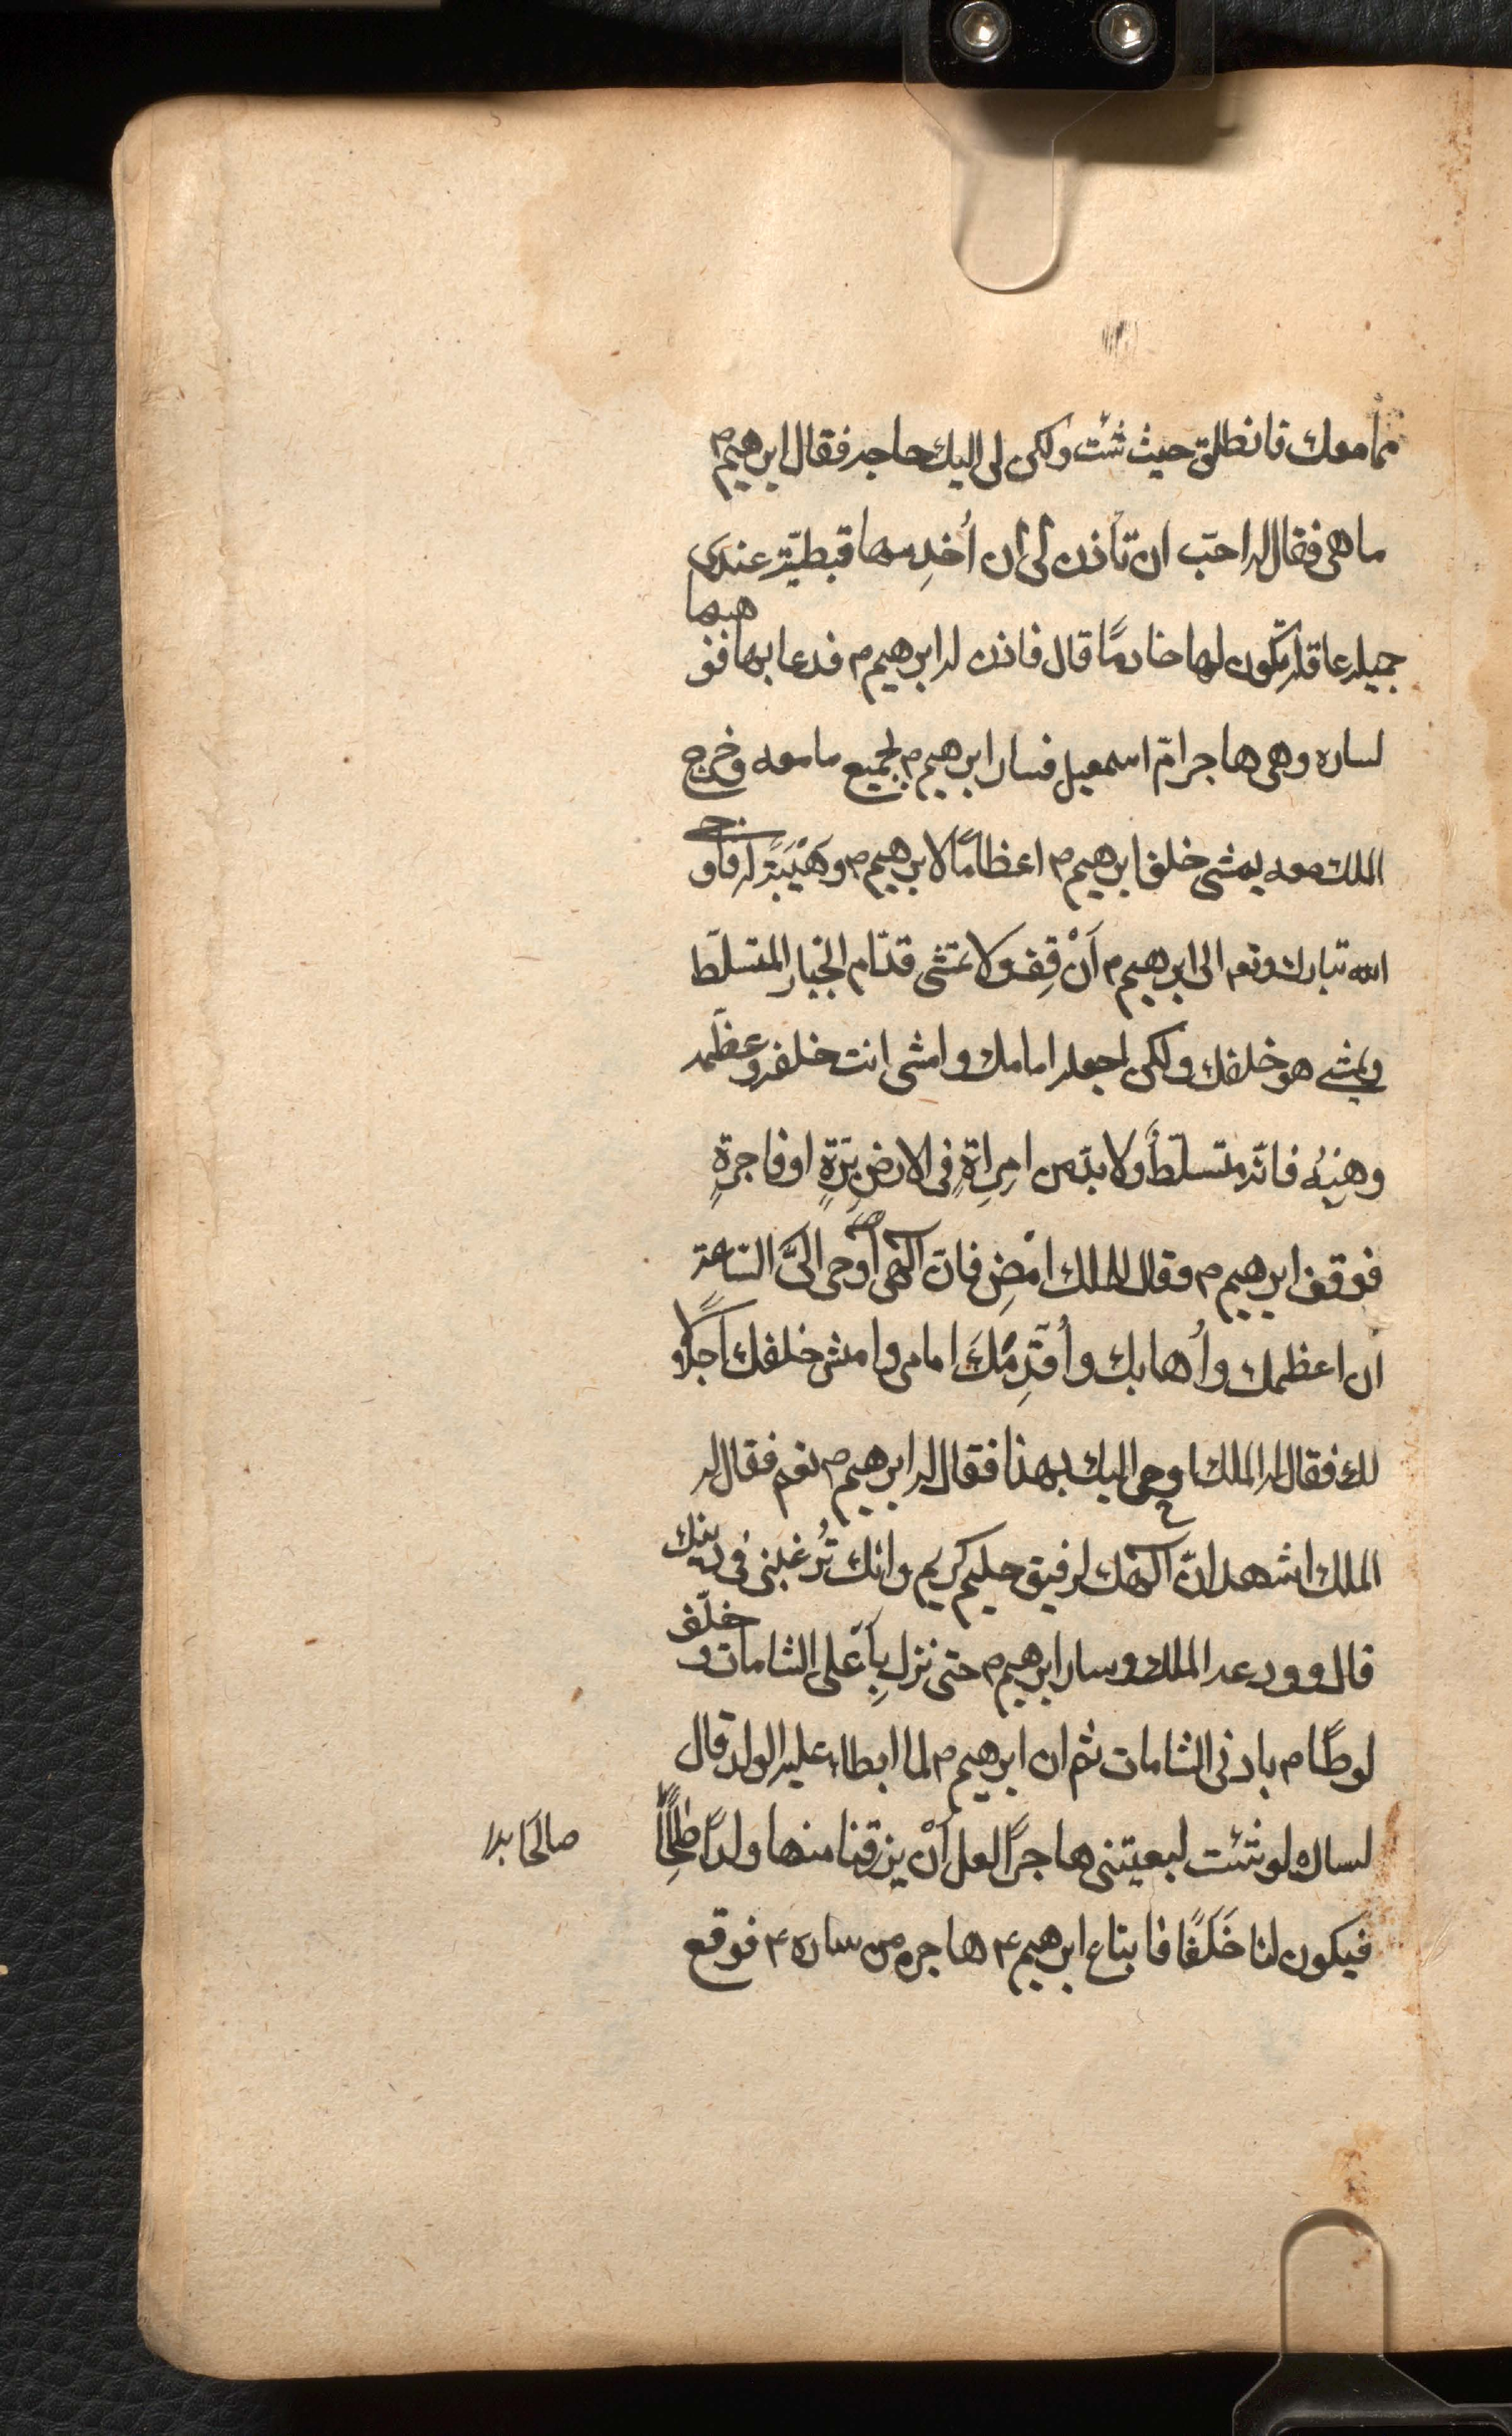 مما معك فانطلق حيث شئت ولكن لى اليك حاجه فقال ابرهيم م
ما هى فقال له احبّ ان تأذن لى ان أُخدِمها قبطيّة عندى
جميله عاقلة تكون لها خادمًا قال فاذن له ابرهيم م فدعا بها فوهبها
لساره وهى هاجر امّ اسمعيل فسار ابرهيم م بجميع ما معه وخرج
الملك معه يمشى خلف ابرهيم م اعظامًا لابرهيم م وهَيْبَةً له فاوحى
الله تبارك وتعـ الى ابرهيم م اَنْ قِف ولا تمشى قدّام الجبار المتسلّط
ويمشى هو خلفك ولكن اجعله امامك وامشى انت خلفه وعظّمه
وهِبْهُ فانّه متسلّطٌ ولا بدّ من امِراةٍ فى الارضِ بَرّةٍ او فاجرةٍ
فوقف ابرهيم م وقال للملك امْضِ فانّ آلهى أوحى الىَّ السّاعة
ان اعظمك وأُهابك وأُقدِّمُكَ امامى وامشى خلفك اجلالًا
لك فقال له الملك اوحى اليك بهذا فقال له ابرهيم م نعم فقال له
الملك اشهد انّ آلهك لرفيق حليم كريم وانك تُرغبنى فى دينك
قال وودعه الملك وسار ابرهيم م حتى نزل بِأَعْلى الشامات وخلّف
لوطًا م بادنى الشامات ثم ان ابرهيم م لما ابطاء عليه الولد قال
لساره لو شئت لبعيتنى هاجرًا لعل اَنْ يرزقنا منها ولدًا صالحًا
صالحًا بدل
فيكون لنا خَلَفًا فابتاع ابرهيم ع هاجره من ساره ع فوقع